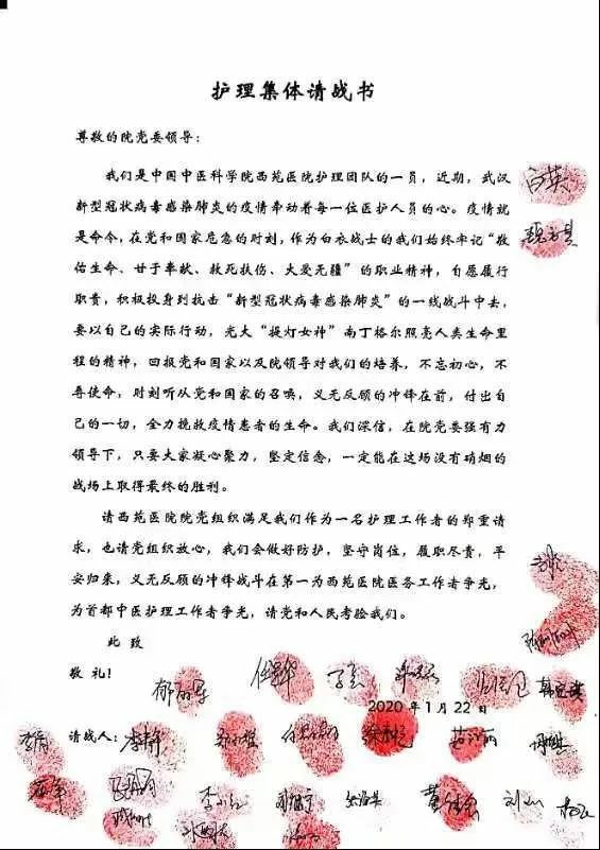 护理集体请战书
尊敬的院党委领导：
我们是中国中医科学院西苑医院护理团队的一员，近期，武汉
新型冠状病毒感染肺炎的疫情牵动着每一位医护人员的心。疫情就
是命令，在党和国家危急的时刻，作为白衣战士的我们始终牢记“救
佑生命、甘于奉献、救死扶伤、大爱无疆”的职业精神，自愿履行
职责，积极投身到抗击“新型冠状病毒感染肺炎”的一线战斗中去，
要以自己的实际行动，光大“提灯女神”南丁格尔照亮人类生命里
程的精神，回报党和国家以及院领导对我们的培养，不忘初心，不
辱使命，时刻听从党和国家的召唤，义无反顾的冲锋在前，付出自
己的一切，全力挽救疫情患者的生命。我们深信，在院党委强有力
领导下，只要大家凝心聚力，坚定信念，一定能在这场没有硝烟的
战场上取得最终的胜利。
请西苑医院院党组织满足我们作为一名护理工作者的郑重请
求，也请党组织放心，我们会做好防护，坚守岗位，履职尽责，平
安归来，义无反顾的冲锋战斗在第一为西苑医院医务工作者争光，
为首都中医护理工作者争光，请党和人民考验我们。
此 致
敬 礼！
2020 年 1 月 22 日
请战人：